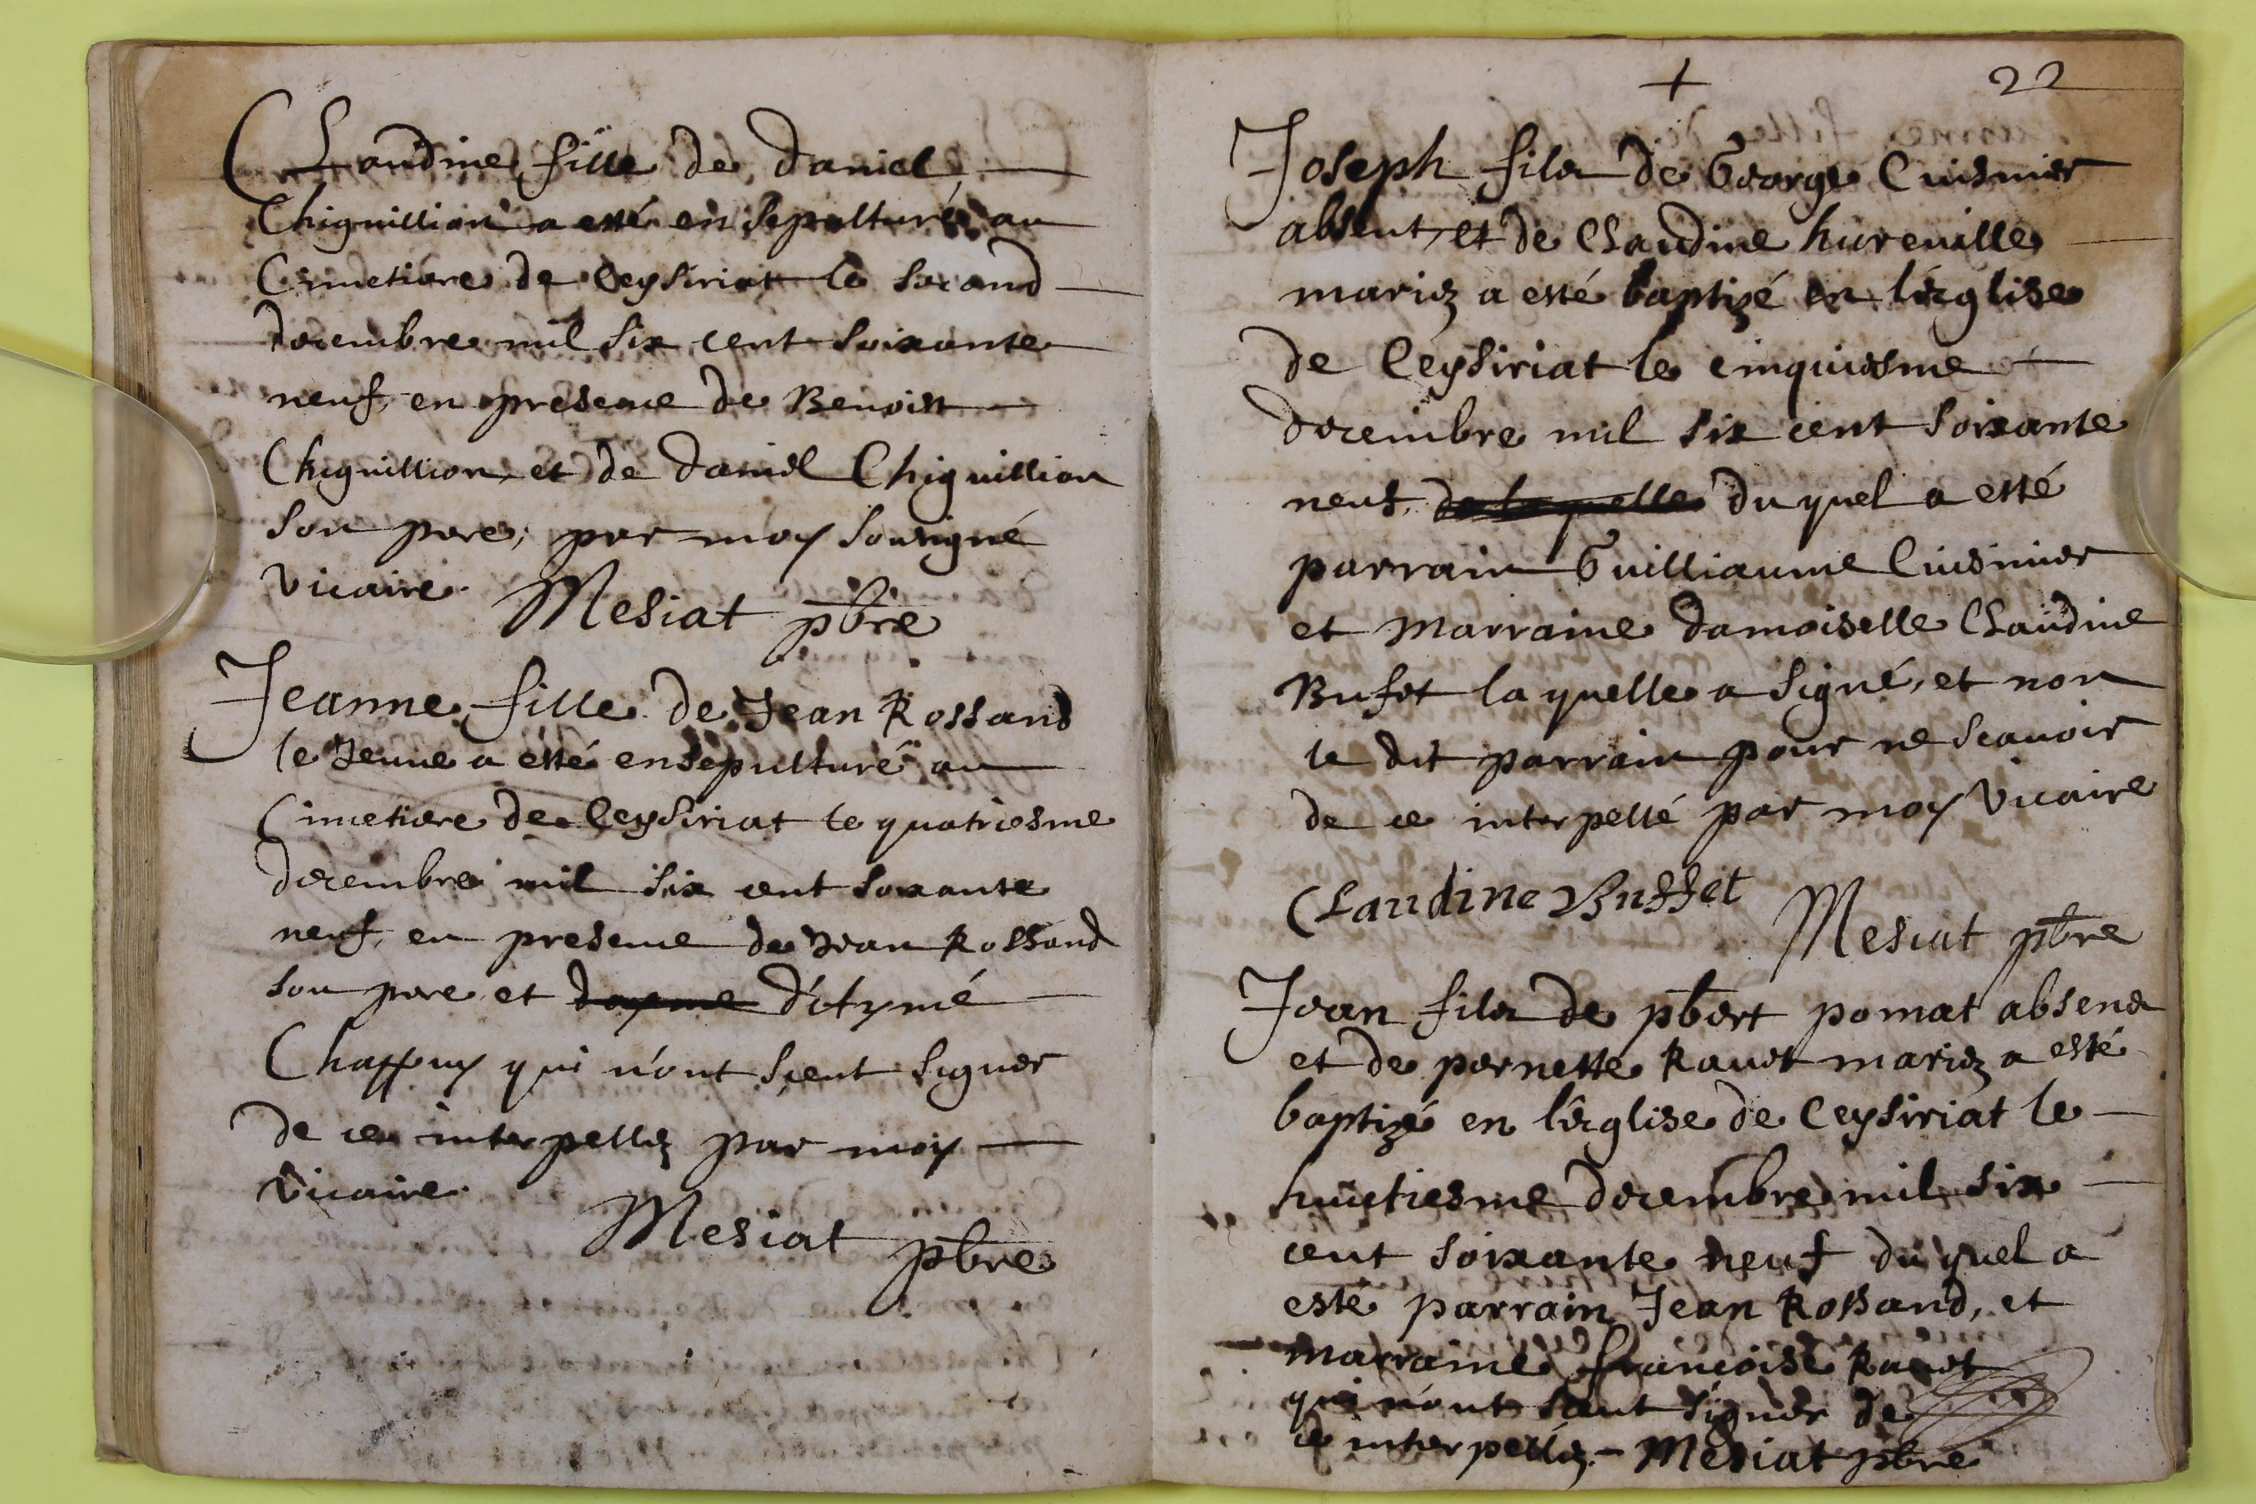 Claudine fille de daniel
Chiguillion a esté ensepulturé au
Cimetiere de Ceysiriat le second
decembre mil six cent soixante
neuf, en presence de Benoist
Chiguillion, et de daniel Chiguillion
son pere; par moy soussigné
vicaire. Mesiat pbre
Jeanne fille de Jean Rossand
le Jeune a esté ensepulturé au
Cimetiere de Ceysiriat le quatriesme
decembre mil six cent soixante
neuf, en presence de Jean Rossand
son pere, et d'étyné
Chappuy qui n'ont sceut signer
de ce interpellez par moy
Vicaire.
Mesiat pbre
22
Joseph fils de George Cuisinier
absent, et de Claudine hureville
mariez a esté baptizé en l'ecglise
de Ceysiriat le cinquiesme
decembre mil six cent soixante
neuf, de laquelle du quel a esté
parrain Guilliaume Cuisinier
et Marraine damoiselle Claudine
Bufet la quelle a signé, et non
le dit parrain pour ne scavoir
de ce interpellé par moy Vicaire
Claudine Buffet
Mesiat pbre
Jean fils de pbert pomat absend
et de pernette Ravet mariez a esté
baptizé en l'ecglise de Ceysiriat le
huictiesme decembre mil six
cent soixante neuf du quel a
esté parrain Jean Rossand, et
marraine francoise Ravet
qui n'ont sceut signer de
ce interpellez. - Mesiat pbre